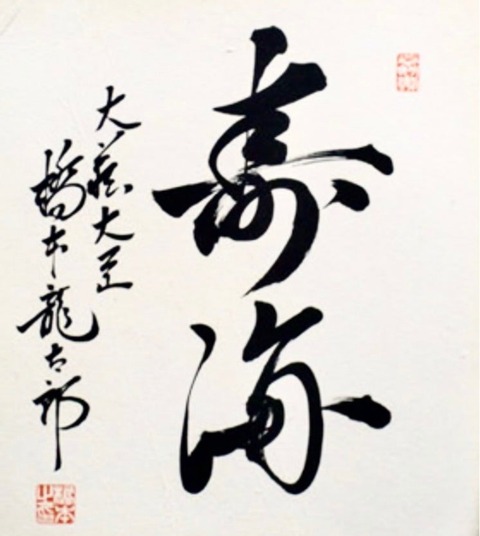 寿海
大蔵大臣
橋本龍太郎